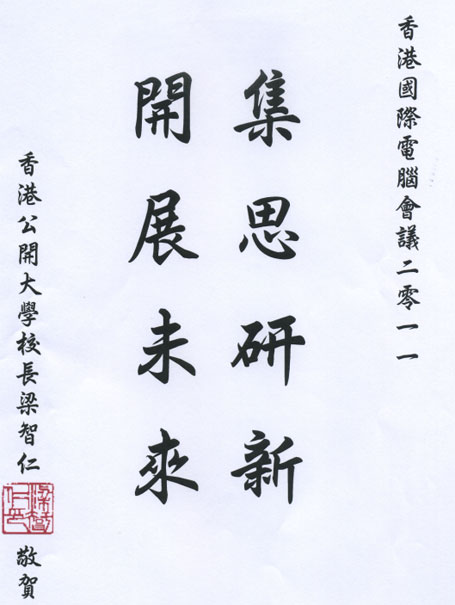 香港國際電腦會議二零一一
集思研新
開展未來
香港公開大學校長梁智仁
敬賀